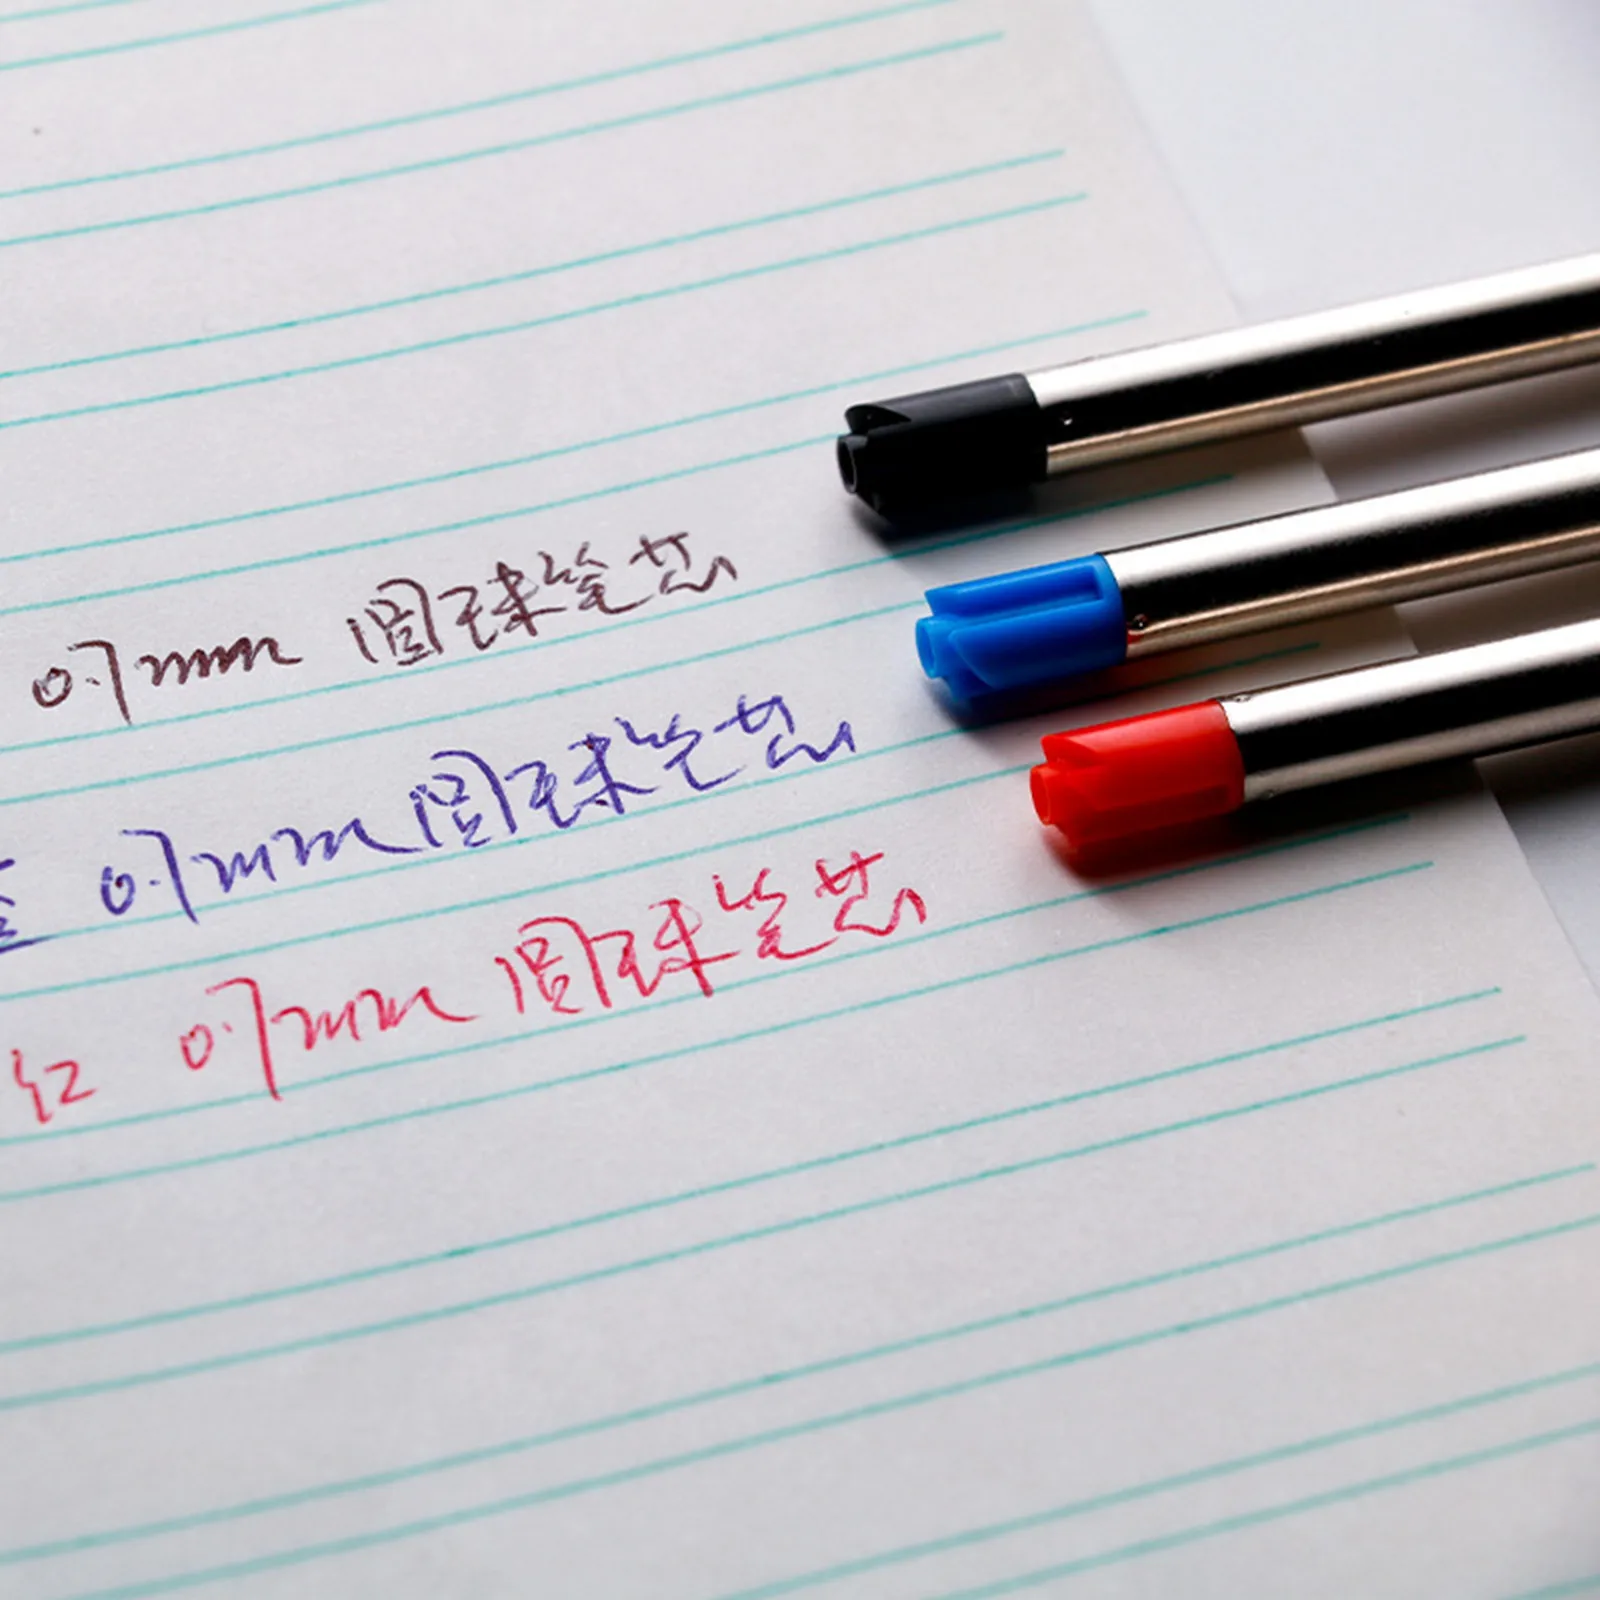 0.7mm 圆球笔芯
蓝 0.7mm 圆球笔芯
红 0.7mm 圆球笔芯